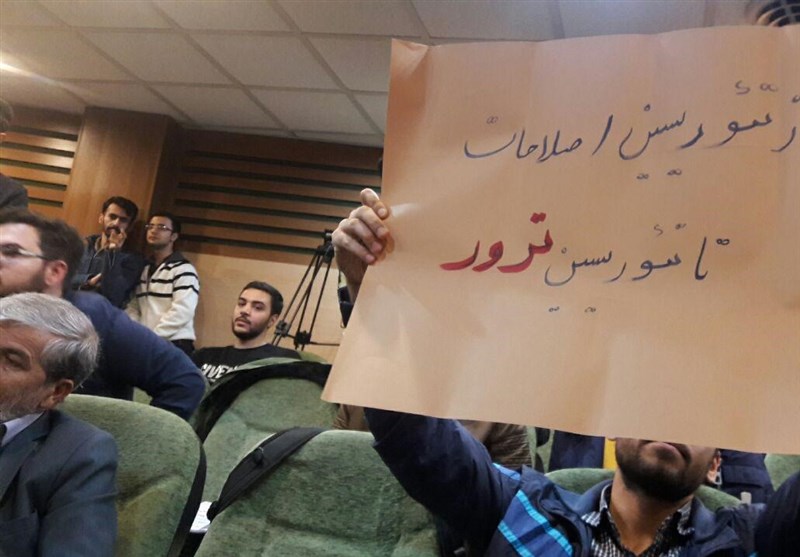 از تئوریسین اصلاحات
تا تئوریسین ترور